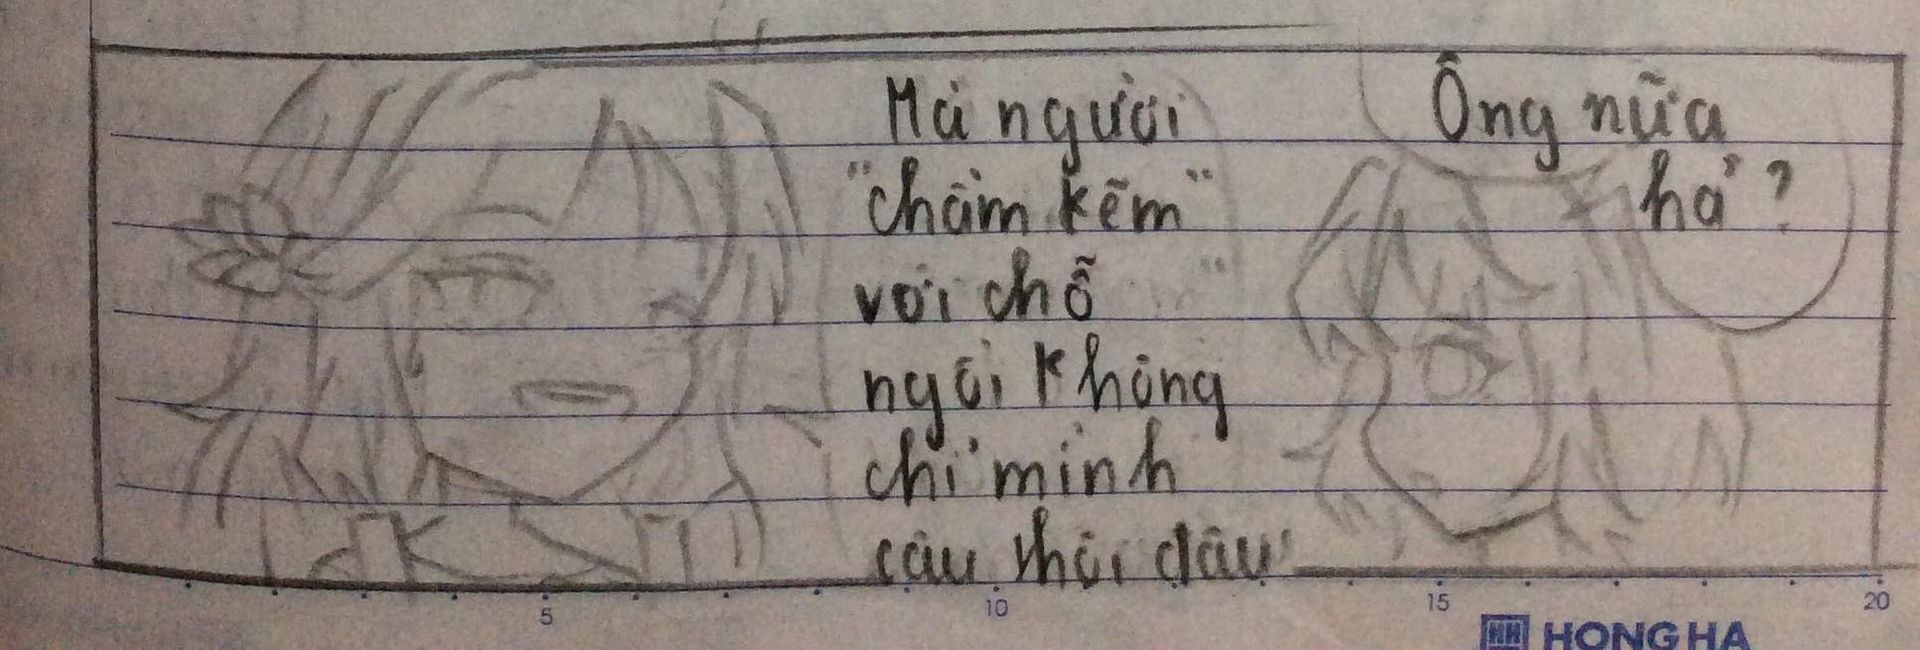 Mà người
"chấm kẽm"
với chỗ
ngồi không
chỉ mình
cậu thôi đâu
Ông nữa
hả?
5 10 15 20
HONG HA